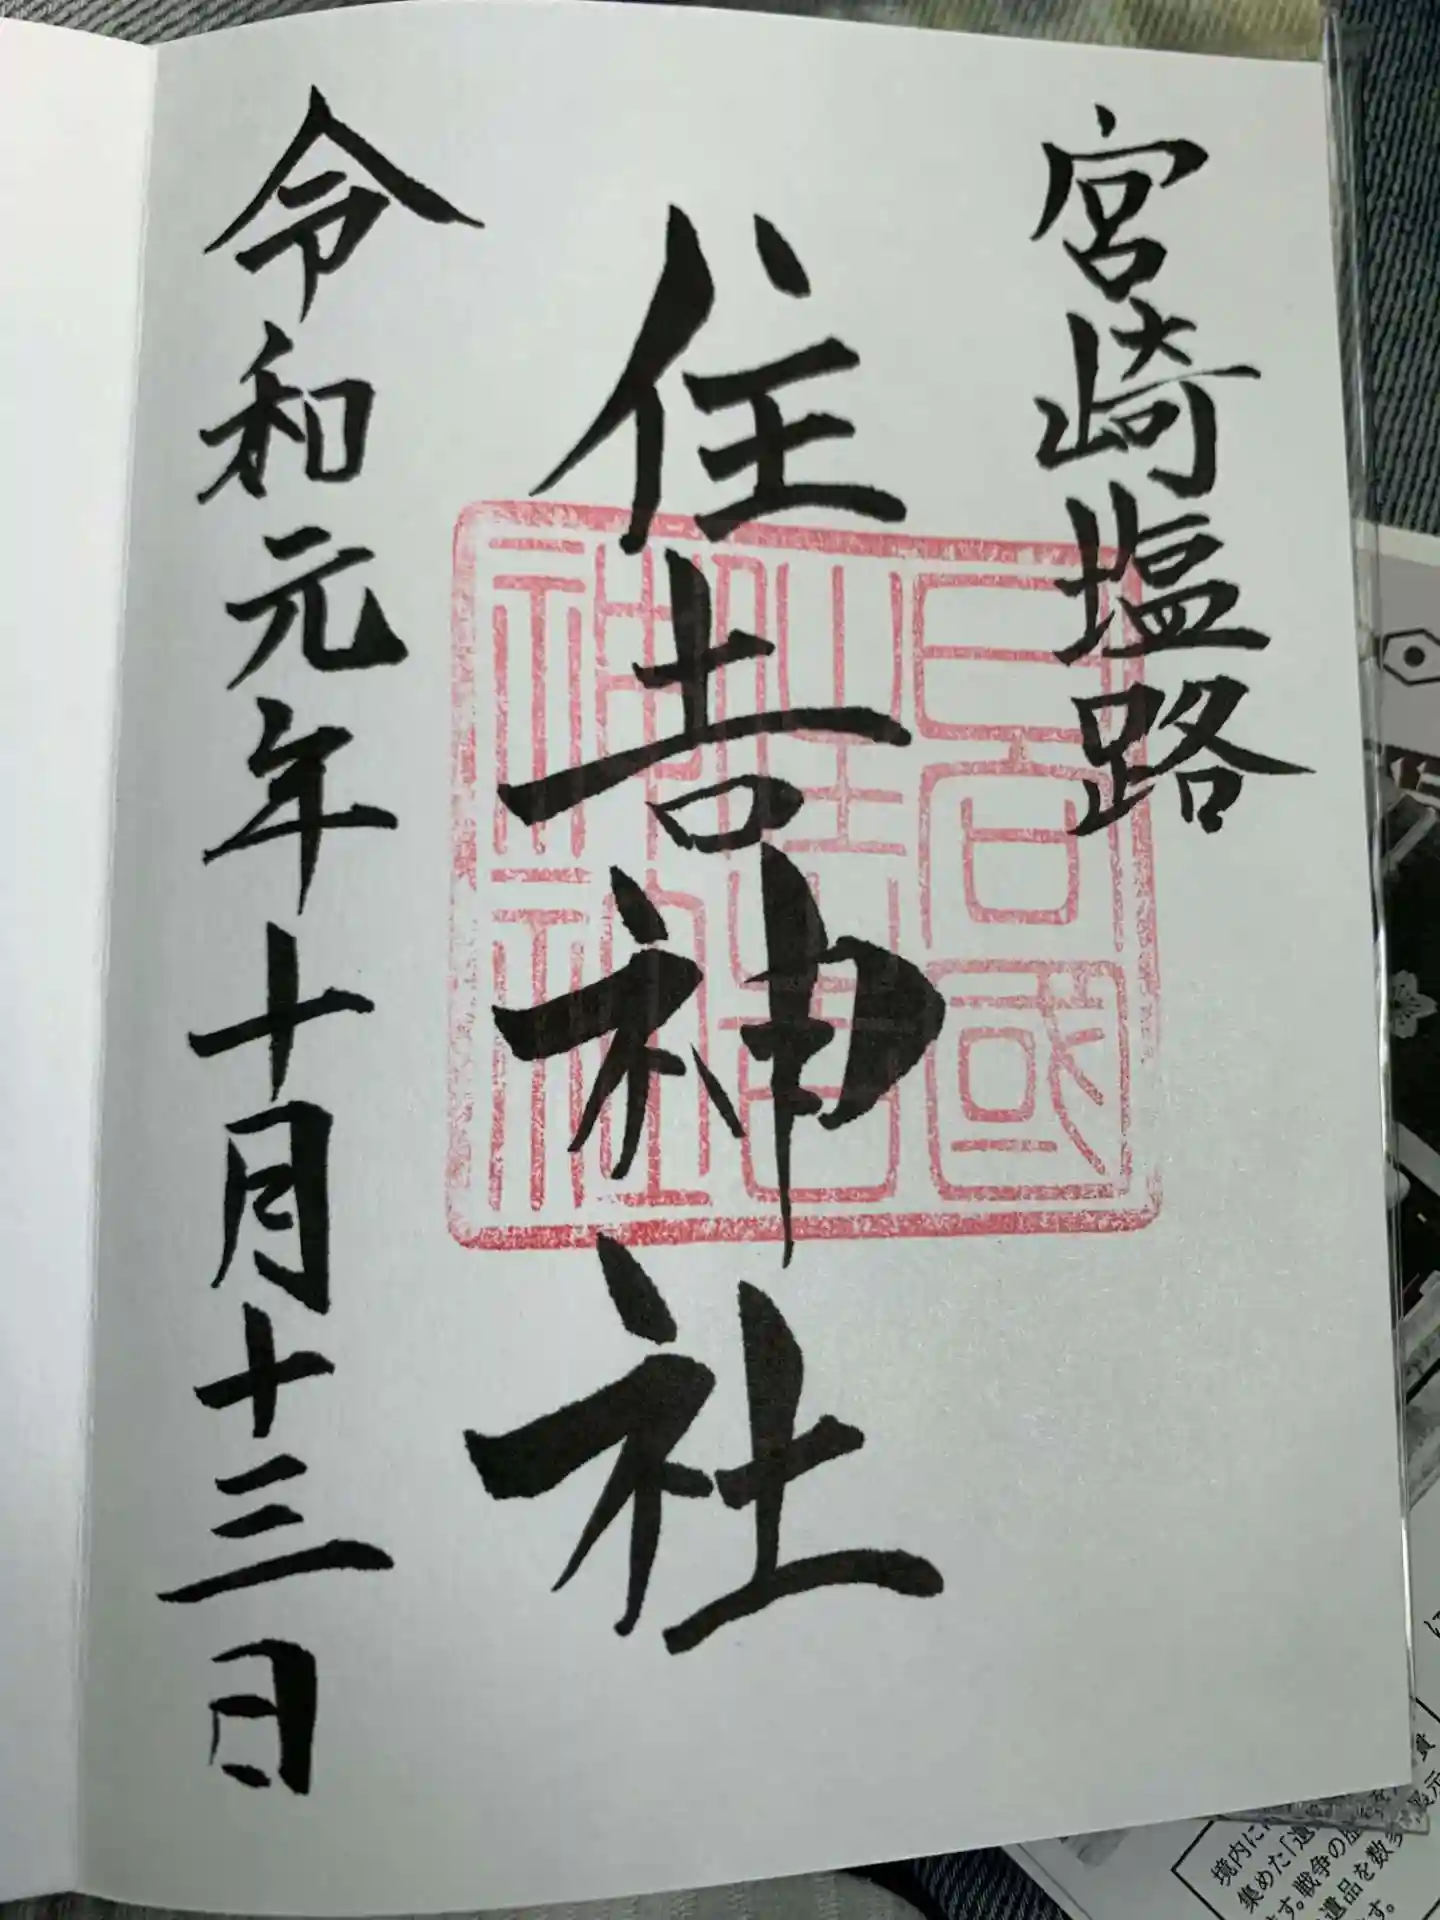 宮崎塩路
住吉神社
令和元年十月十三日
日向國
住吉
神社
境内に
集めた「遺
す。戦争の歴
遺品を数多